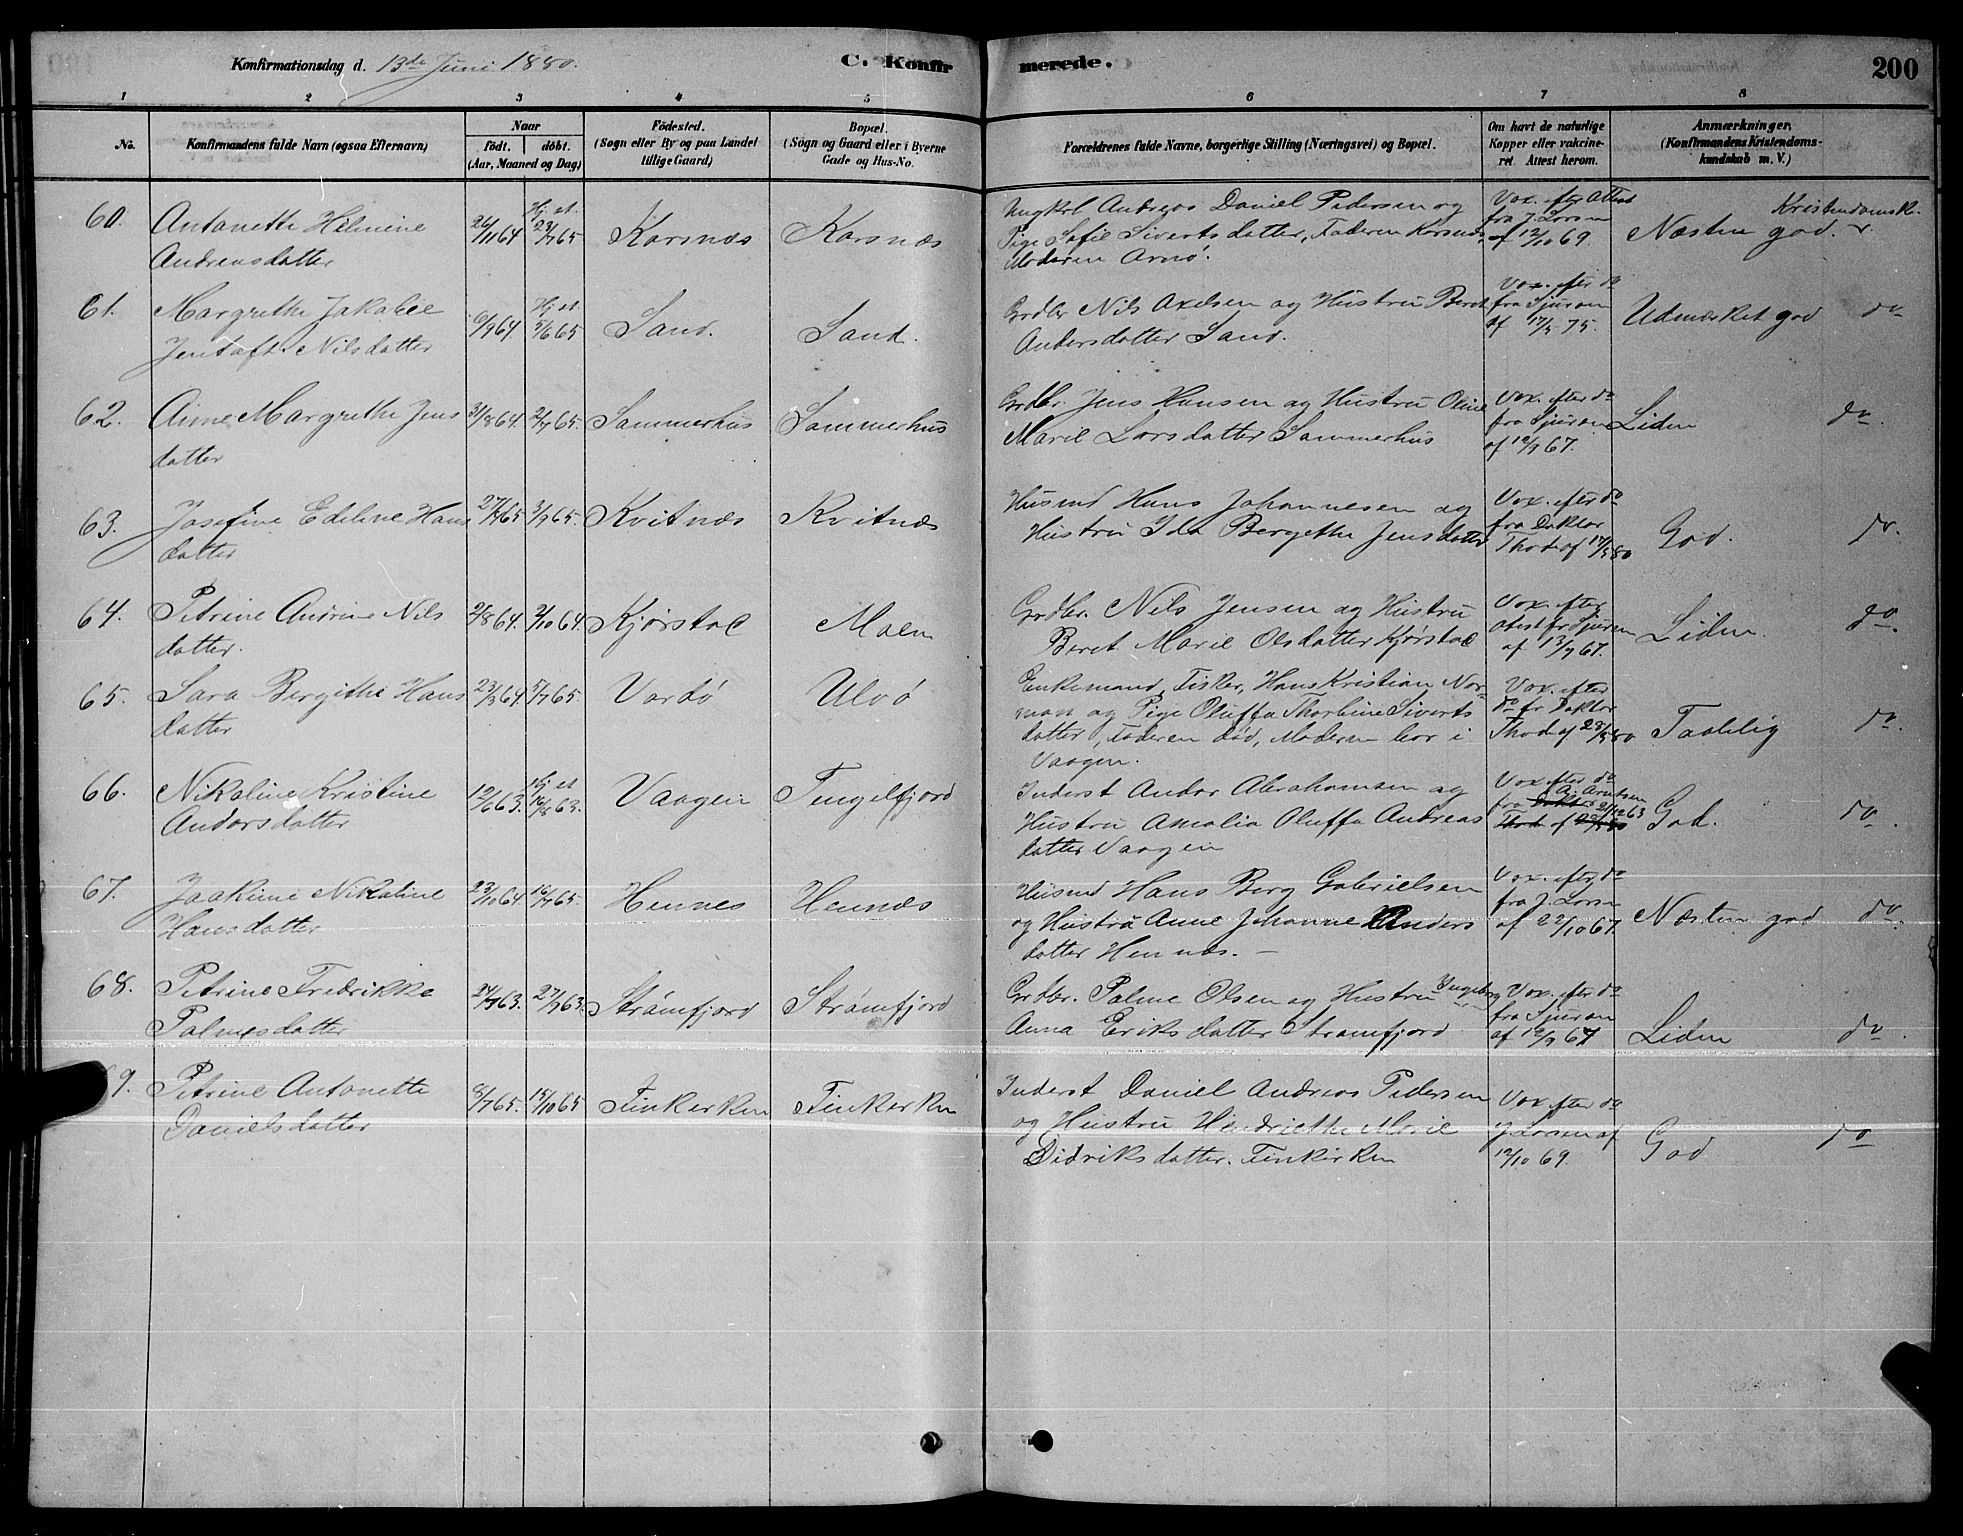 Konfirmationsdag d. 13de Juni 1880.
C. Konfirmerede.
200
1 2 3 4 5 6 7 8
No.
Konfirmandens fulde Navn (ogsaa Efternavn)
Naar
födt. döbt.
(Aar, Maaned og Dag)
Födested.
(Sogn eller By og paa Landet
tillige Gaard)
Bopæl.
(Sogn og Gaard eller i Byerne
Gade og Hus-No.
Forældrenes fulde Navne, borgerlige Stilling (Næringsvei) og Bopæl.
Om havt de naturlige
Kopper eller vakcine-
ret. Attest herom.
Anmærkninger,
(Konfirmandens Kristendoms-
kundskab m. V.)
60. Antonette Helmine
Andreasdatter
26/11 64
Hj. st.
23/7 65
Korsnæs
Korsnæs
Ungkrl Andreas Daniel Pedersen og
Pige Sofie Sivertsdatter, Faderen Korsnæs,
Moderen Arnø.
Vox. efter Attest
fra J. Lorsen
af 12/10 69.
Kristendomsk.
Næsten god.
61. Margrethe Jakobie
Jentoft Nilsdatter
6/9 64.
Hj. st.
5/6 65
Sand.
Sand.
Grdbr Nils Axelsen og Hustru Beret
Andersdatter Sand.
Vox. efter do
fra Sjuren
af 17/5 75.
Udmærket god do
62. Anne Margrethe Jens
datter
31/8 64.
2/7 65.
Sommerhus
Sommerhus
Grdbr. Jens Hansen og Hustru Oline
Marie Larsdatter Sommerhus
Vox. efter do
fra Sjuren
af 12/9 67.
Liden do.
63. Josefine Edeline Hans
datter
27/7 65
3/9 65.
Kvitnæs
Kvitnæs
Husmd Hans Johannesen og
Hustru Ida Bergethe Jensdatter
Vox. efter do
fra Doktor
Thode af 17/5 80
God. do.
64. Petrine Andrine Nils
datter.
2/8 64.
2/10 64.
Kjørstad
Moen
Grdbr. Nils Jensen og Hustru
Beret Marie Olsdatter Kjørstad
Vox. efter
Atest fr Sjuren
af 13/9 67.
Liden. do.
65. Sara Bergithe Hans
datter
23/3 64.
5/7 65.
Vardø
Ulvø
Enkemand, Fisker, Hans Kristian Nor-
man og Pige Oluffa Thorbine Siverts
datter, Faderen død, Moderen bor i
Vaagen.
Vox. efter
do fr Doktor
Thode af 23/5 80
Taalelig do.
66. Nikoline Kristine
Andorsdatter
12/6 63.
Hj. st
16/8 63.
Vaagen
Tengelfjord
Inderst Andor Abrahamsen og
Hustru Amalia Oluffa Andreas
datter Vaagen
Vox efter do
fra Doktor A. Arntsen
Thode af 21/12 63
God. do.
67. Joakime Nikoline
Hansdatter
23/10 64
16/7 65.
Hennes
Hennæs
Husmd Hans Berg Gabrielsen
og Hustru Anne Johanne Anders
datter Hennæs. —
Vox. efter do
fra J. Lorsn
af 22/10 67.
Næsten god do.
68. Petrine Fredrikke
Palmesdatter
24/7 63.
27/9 63.
Strømfjord
Strømfjord
Grdbr. Palme Olsen og Hustru Ingeborg
Anna Eriksdatter Strømfjord
Vox. efter do
fra Sjuren
af 12/9 67
Liden do.
9. Petrine Antonette
Danielsdatter
8/7 65.
15/10 65
Finkerken
Finkerken
Inderst Daniel Andreas Pedersen
og Hustru Hendriethe Marie
Didriksdatter. Finkirken
Vox efter do
J Lorsen af
12/10 69.
God do